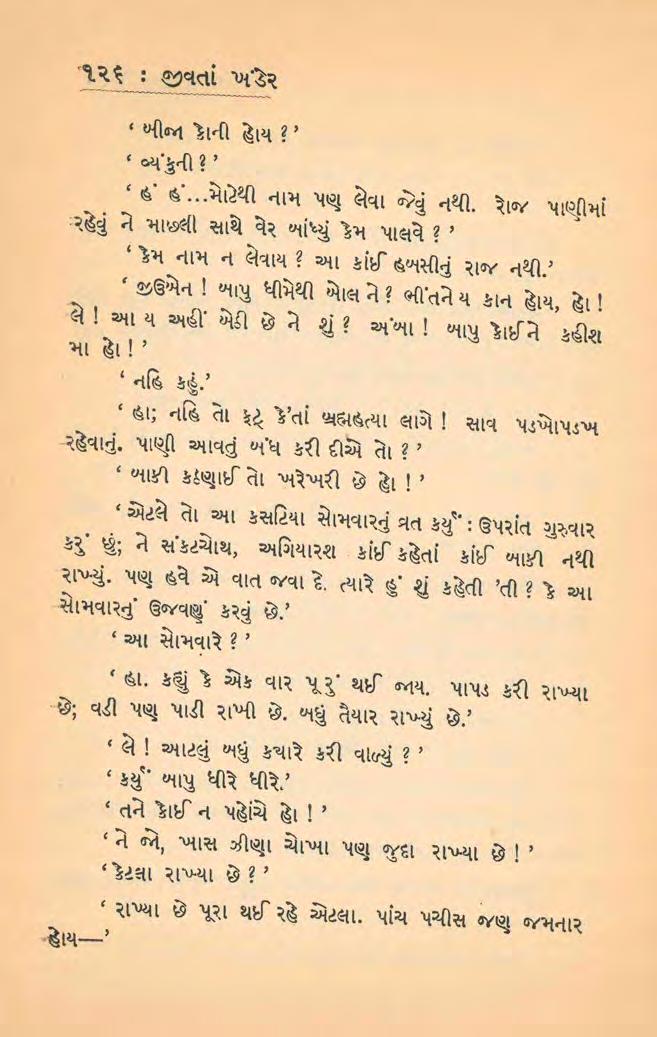 ૧૨૬ : જીવતાં ખંડેર
‘ બીજા કોની હોય ? ’
‘ વ્યંકુની ? ’
‘ હં હં...મોટેથી નામ પણ લેવા જેવું નથી. રોજ પાણીમાં
રહેવું ને માછલી સાથે વેર બાંધ્યું કેમ પાલવે ? ’
‘ કેમ નામ ન લેવાય ? આ કાંઈ હબસીનું રાજ નથી.’
‘ જીઉબેન ! બાપુ ધીમેથી બોલ ને ? ભીંતને ય કાન હોય, હો !
લે ! આ ય અહીં બેઠી છે ને શું ? અંબા ! બાપુ કોઈને કહીશ
મા હો ! ’
‘ નહિ કહું.’
‘ હા; નહિ તો ફટ્ કે’તાં બ્રહ્મહત્યા લાગે ! સાવ પડખોપડખ
રહેવાનું. પાણી આવતું બંધ કરી દીએ તો ? ’
‘ બાકી કઠણાઈ તો ખરેખરી છે હો ! ’
‘ એટલે તો આ કસટિયા સોમવારનું વ્રત કર્યું : ઉપરાંત ગુરુવાર
કરું છું; ને સંકટચોથ, અગિયારશ કાંઈ કહેતાં કાંઈ બાકી નથી
રાખ્યું. પણ હવે એ વાત જવા દે. ત્યારે હું શું કહેતી ’તી ? કે આ
સોમવારનું ઉજવણું કરવું છે.’
‘ આ સોમવારે ? ’
‘ હા. કહ્યું કે એક વાર પૂરું થઈ જાય. પાપડ કરી રાખ્યા
છે; વડી પણ પાડી રાખી છે. બધું તૈયાર રાખ્યું છે.’
‘ લે ! આટલું બધું કયારે કરી વાળ્યું ? ’
‘ કર્યું બાપુ ધીરે ધીરે.’
‘ તને કોઈ ન પહોંચે હો ! ’
‘ ને જો, ખાસ ઝીણા ચોખા પણ જુદા રાખ્યા છે ! ’
‘ કેટલા રાખ્યા છે ? ’
‘ રાખ્યા છે પૂરા થઈ રહે એટલા. પાંચ પચીસ જણ જમનાર
હોય—’